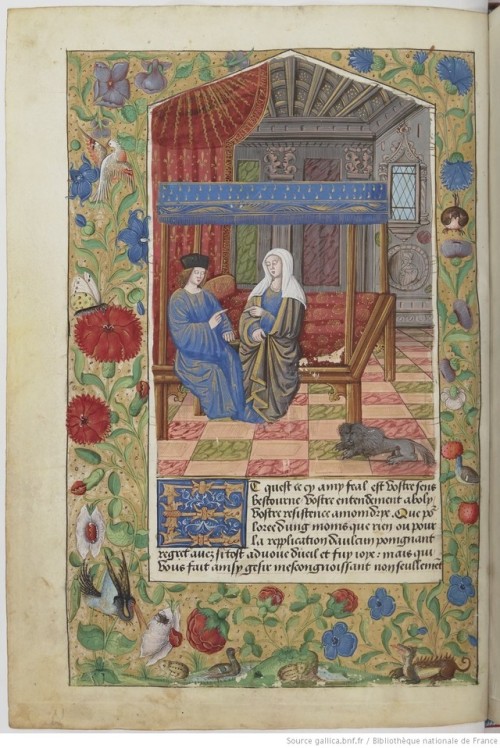 Et quest ce cy amy feal est vostre sens
bestourne vostre entendement aboly
vostre resistence amondrie. Que po'
lozee dung moins que rien ou pour
la replication daulcun poingnant
regret avez si tost advoue dueil et fuy ioye: mais qui
vous fait ainsy gesir mescongnoissant non seullement
Source gallica.bnf.fr / Bibliothèque nationale de France